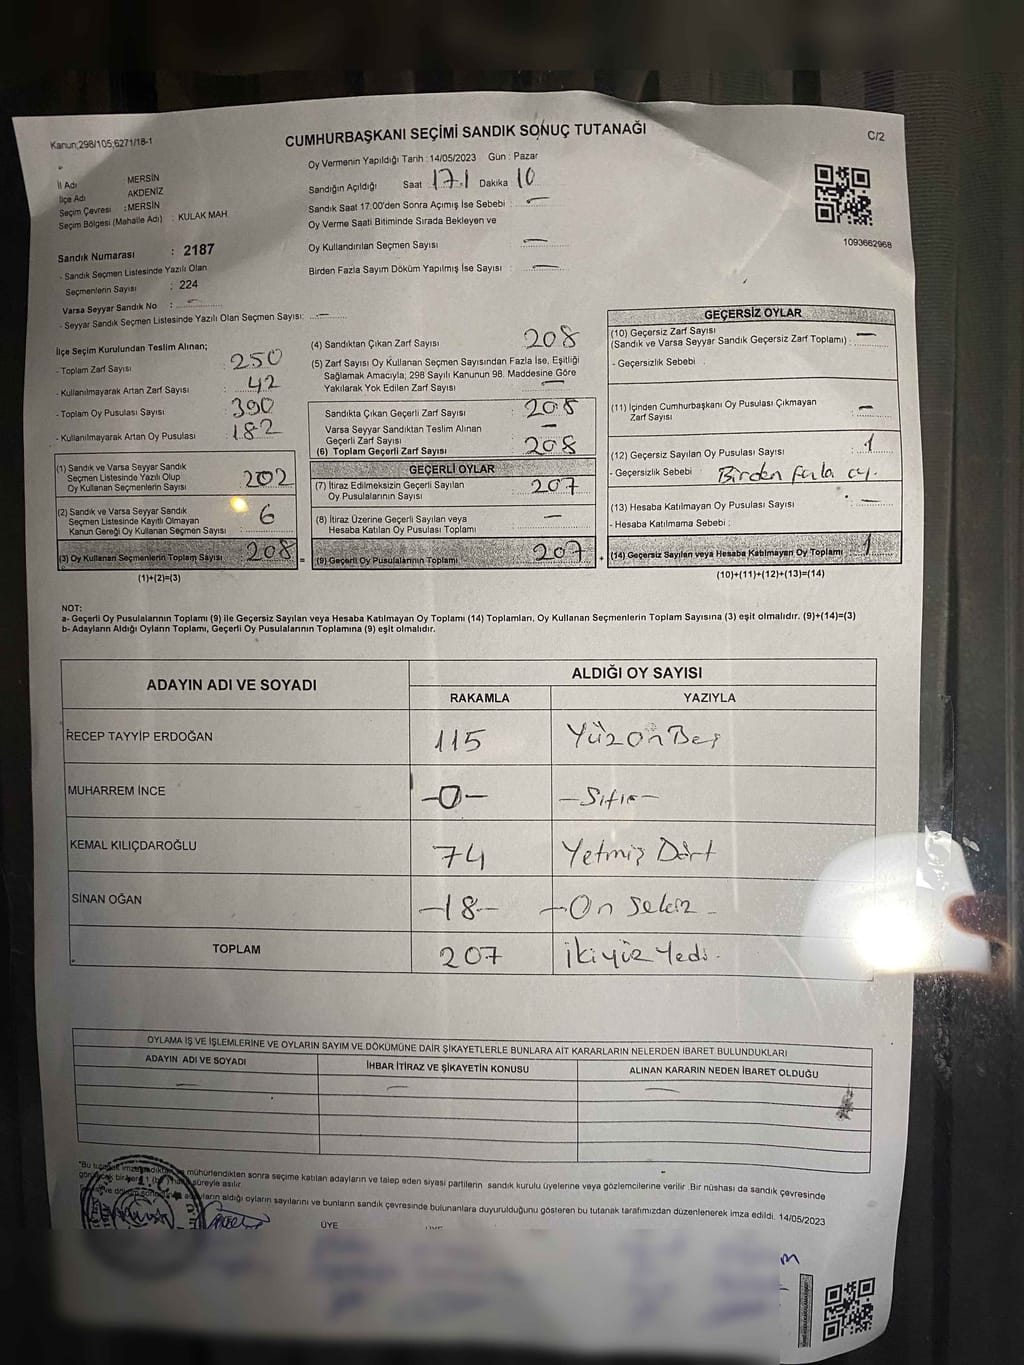 Kanun;298/105;6271/18-1
CUMHURBAŞKANI SEÇİMİ SANDIK SONUÇ TUTANAĞI
C/2
İl Adı MERSİN
İlçe Adı AKDENİZ
Seçim Çevresi : MERSİN
Seçim Bölgesi (Mahalle Adı) : KULAK MAH.
Oy Vermenin Yapıldığı Tarih : 14/05/2023 Gün : Pazar
Sandığın Açıldığı Saat 17.1 Dakika 10
Sandık Saat 17.00'den Sonra Açımış İse Sebebi : —
Oy Verme Saati Bitiminde Sırada Bekleyen ve
Oy Kullandırılan Seçmen Sayısı —
Birden Fazla Sayım Döküm Yapılmış İse Sayısı : —
1093662968
Sandık Numarası : 2187
- Sandık Seçmen Listesinde Yazılı Olan
Seçmenlerin Sayısı : 224
Varsa Seyyar Sandık No : —
- Seyyar Sandık Seçmen Listesinde Yazılı Olan Seçmen Sayısı: —
İlçe Seçim Kurulundan Teslim Alınan;
- Toplam Zarf Sayısı 250
- Kullanılmayarak Artan Zarf Sayısı : 42
- Toplam Oy Pusulası Sayısı : 390
- Kullanılmayarak Artan Oy Pusulası : 182
(1) Sandık ve Varsa Seyyar Sandık
Seçmen Listesinde Yazılı Olup
Oy Kullanan Seçmenlerin Sayısı 202
(2) Sandık ve Varsa Seyyar Sandık
Seçmen Listesinde Kayıtlı Olmayan
Kanun Gereği Oy Kullanan Seçmen Sayısı 6
(3) Oy Kullanan Seçmenlerin Toplam Sayısı 208 =
(1)+(2)=(3)
(4) Sandıktan Çıkan Zarf Sayısı 208
(5) Zarf Sayısı Oy Kullanan Seçmen Sayısından Fazla İse, Eşitliği
Sağlamak Amacıyla; 298 Sayılı Kanunun 98. Maddesine Göre
Yakılarak Yok Edilen Zarf Sayısı —
Sandıkta Çıkan Geçerli Zarf Sayısı : 208
Varsa Seyyar Sandıktan Teslim Alınan
Geçerli Zarf Sayısı —
(6) Toplam Geçerli Zarf Sayısı 208
GEÇERLİ OYLAR
(7) İtiraz Edilmeksizin Geçerli Sayılan
Oy Pusulalarının Sayısı : 207
(8) İtiraz Üzerine Geçerli Sayılan veya
Hesaba Katılan Oy Pusulası Toplamı —
(9) Geçerli Oy Pusulalarının Toplamı 207 +
GEÇERSİZ OYLAR
(10) Geçersiz Zarf Sayısı
(Sandık ve Varsa Seyyar Sandık Geçersiz Zarf Toplamı) : —
- Geçersizlik Sebebi :
(11) İçinden Cumhurbaşkanı Oy Pusulası Çıkmayan
Zarf Sayısı —
(12) Geçersiz Sayılan Oy Pusulası Sayısı : 1
- Geçersizlik Sebebi Birden fazla oy.
(13) Hesaba Katılmayan Oy Pusulası Sayısı : —
- Hesaba Katılmama Sebebi :
(14) Geçersiz Sayılan veya Hesaba Katılmayan Oy Toplamı 1
(10)+(11)+(12)+(13)=(14)
NOT:
a- Geçerli Oy Pusulalarının Toplamı (9) ile Geçersiz Sayılan veya Hesaba Katılmayan Oy Toplamı (14) Toplamları, Oy Kullanan Seçmenlerin Toplam Sayısına (3) eşit olmalıdır. (9)+(14)=(3)
b- Adayların Aldığı Oyların Toplamı, Geçerli Oy Pusulalarının Toplamına (9) eşit olmalıdır.
ADAYIN ADI VE SOYADI ALDIĞI OY SAYISI
RAKAMLA YAZIYLA
RECEP TAYYİP ERDOĞAN 115 Yüz On Beş
MUHARREM İNCE -0- -Sıfır-
KEMAL KILIÇDAROĞLU 74 Yetmiş Dört
SİNAN OĞAN -18- -On Sekiz-
TOPLAM 207 İkiyüz Yedi.
OYLAMA İŞ VE İŞLEMLERİNE VE OYLARIN SAYIM VE DÖKÜMÜNE DAİR ŞİKAYETLERLE BUNLARA AİT KARARLARIN NELERDEN İBARET BULUNDUKLARI
ADAYIN ADI VE SOYADI İHBAR İTİRAZ VE ŞİKAYETİN KONUSU ALINAN KARARIN NEDEN İBARET OLDUĞU
— — —
"Bu mühürlendikten sonra seçime katılan adayların ve talep eden siyasi partilerin sandık kurulu üyelerine veya gözlemcilerine verilir. Bir nüshası da sandık çevresinde
süreyle asılır.
aldığı oyların sayılarını ve bunların sandık çevresinde bulunanlara duyurulduğunu gösteren bu tutanak tarafımızdan düzenlenerek imza edildi. 14/05/2023
T.C.
ÜYE